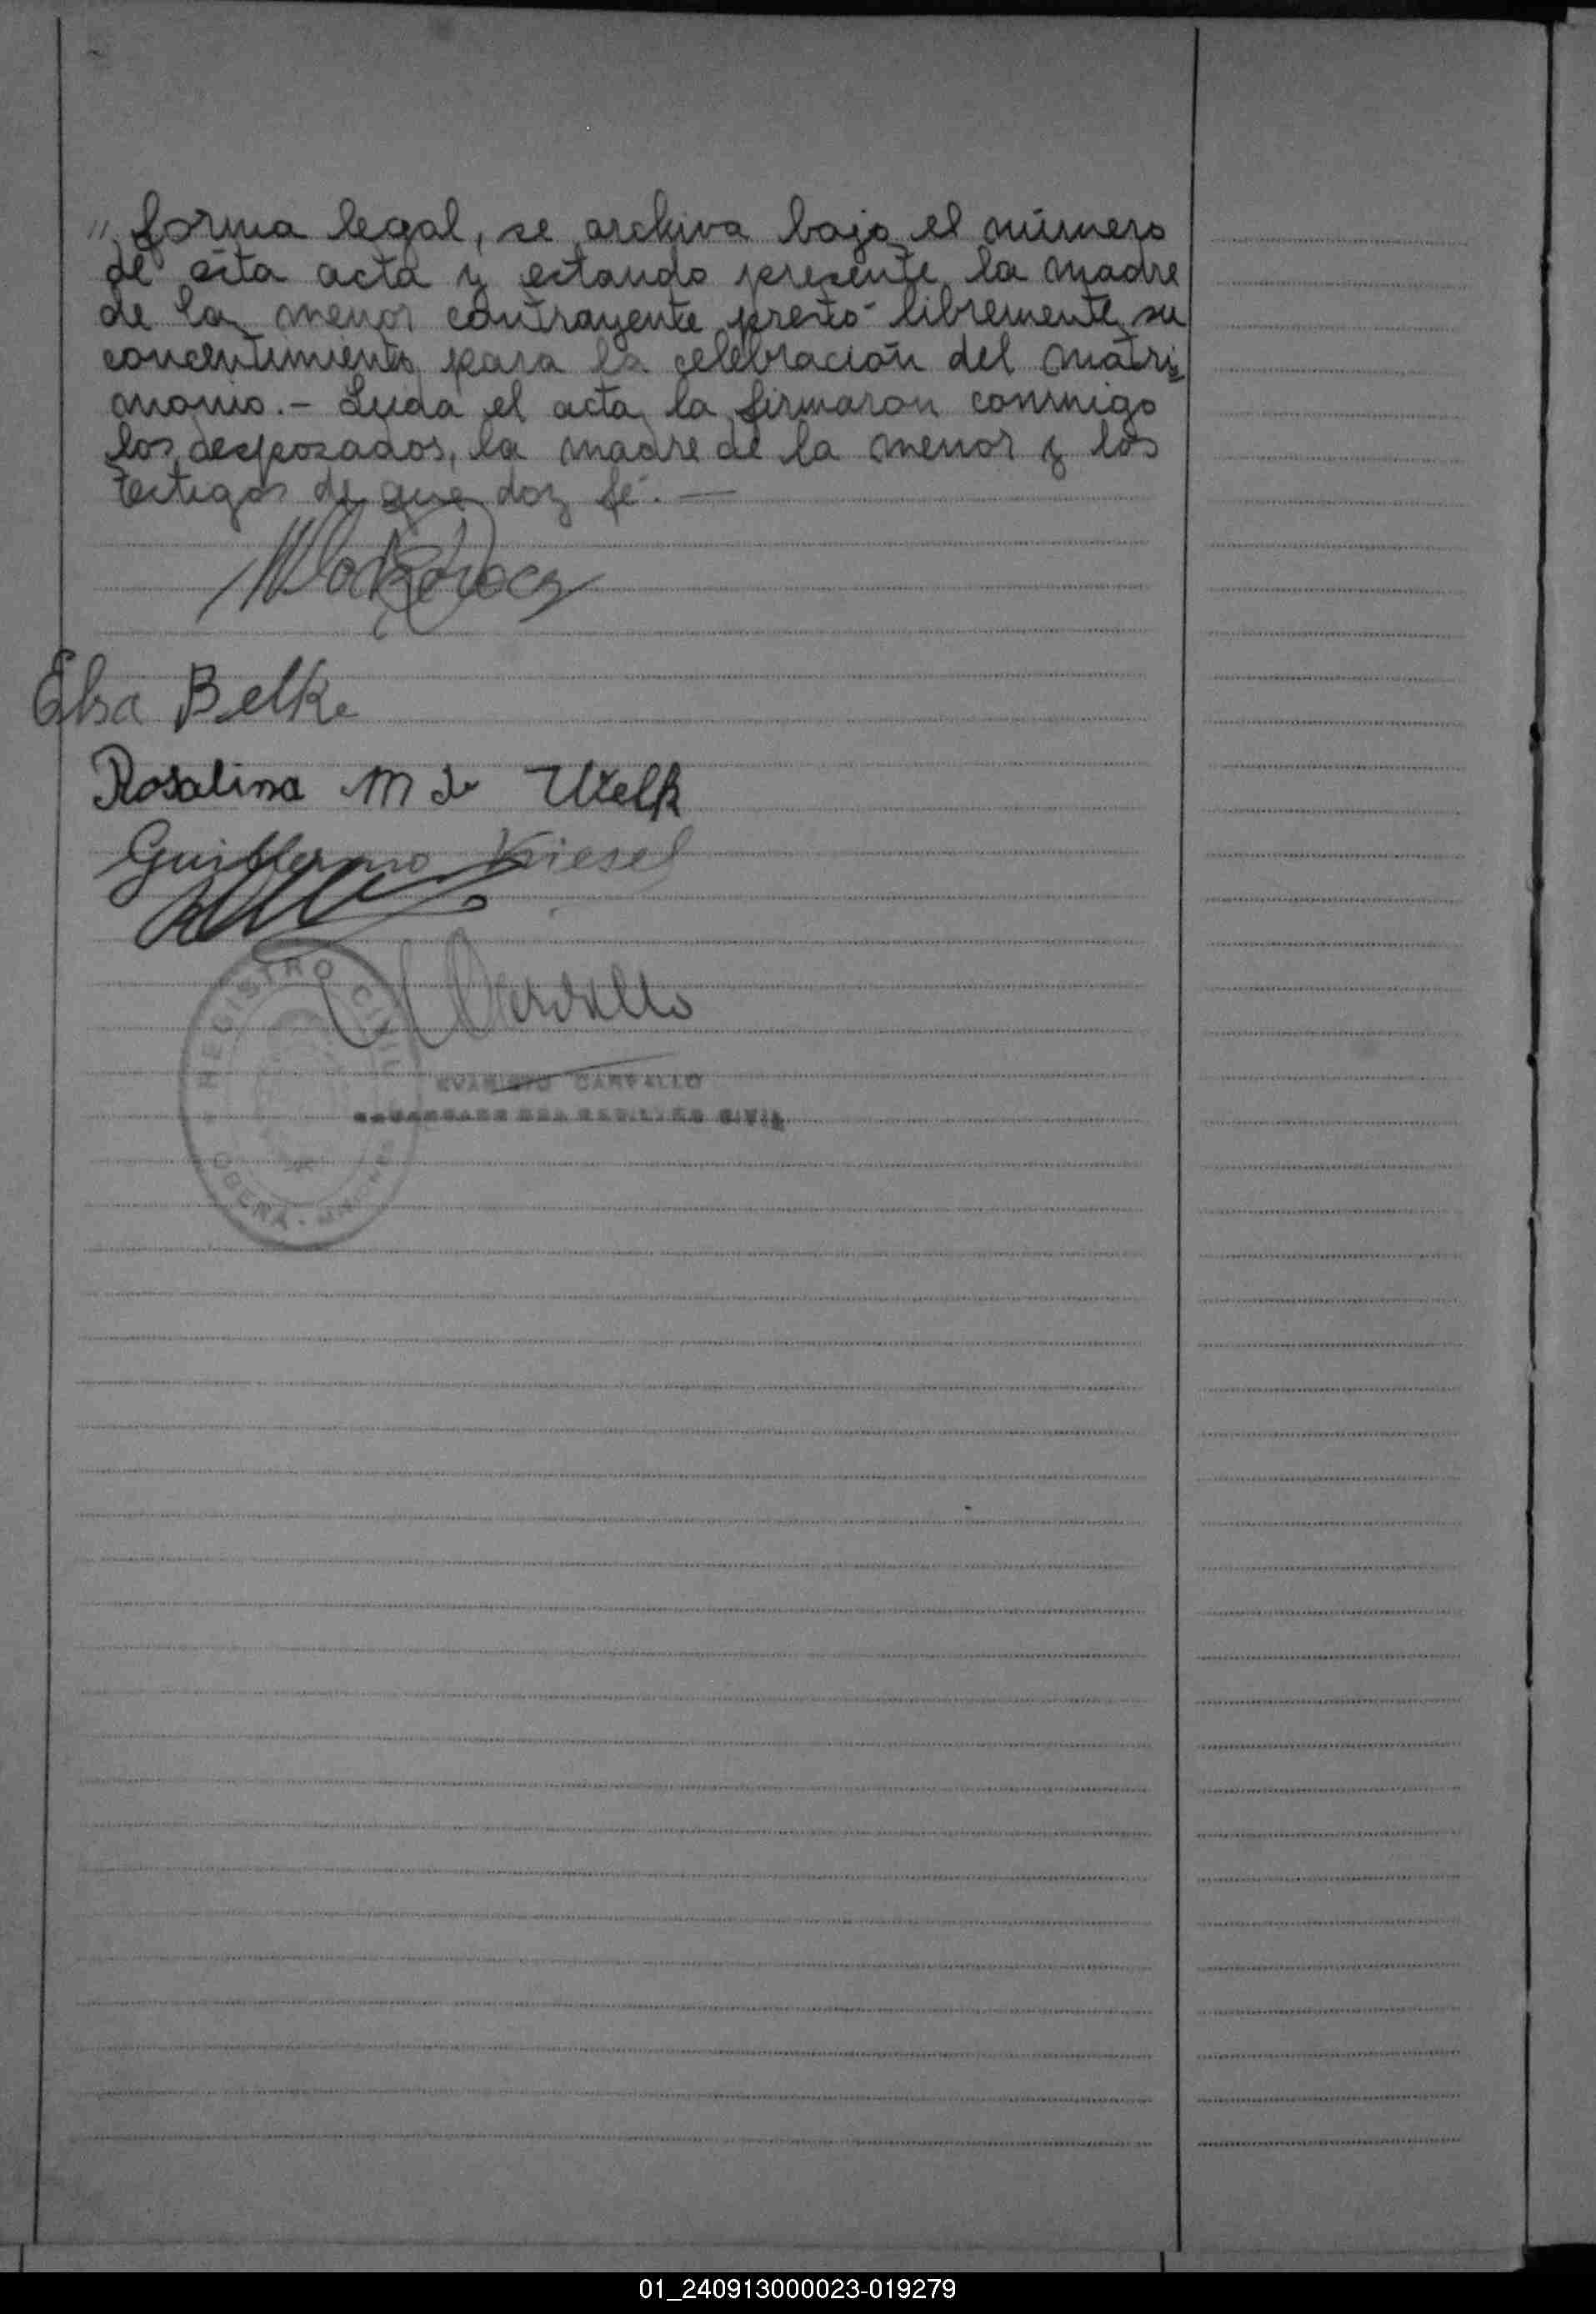 " forma legal, se archiva bajo el número
de ésta acta y estando presente la madre
de la menor contrayente prestó libremente su
concentimiento para la celebración del matri=
monio.- Leída el acta la firmaron conmigo
los desposados, la madre de la menor y los
testigos de que doy fé.—
Elsa Belke
Rosalina M de Uxelk
Guillermo Kiesel
Carvallo
REGISTRO CIVIL
EVARISTO CARVALLO
ENCARGADO DEL REGISTRO CIVIL
OBERÁ - MNES
01_240913000023-019279